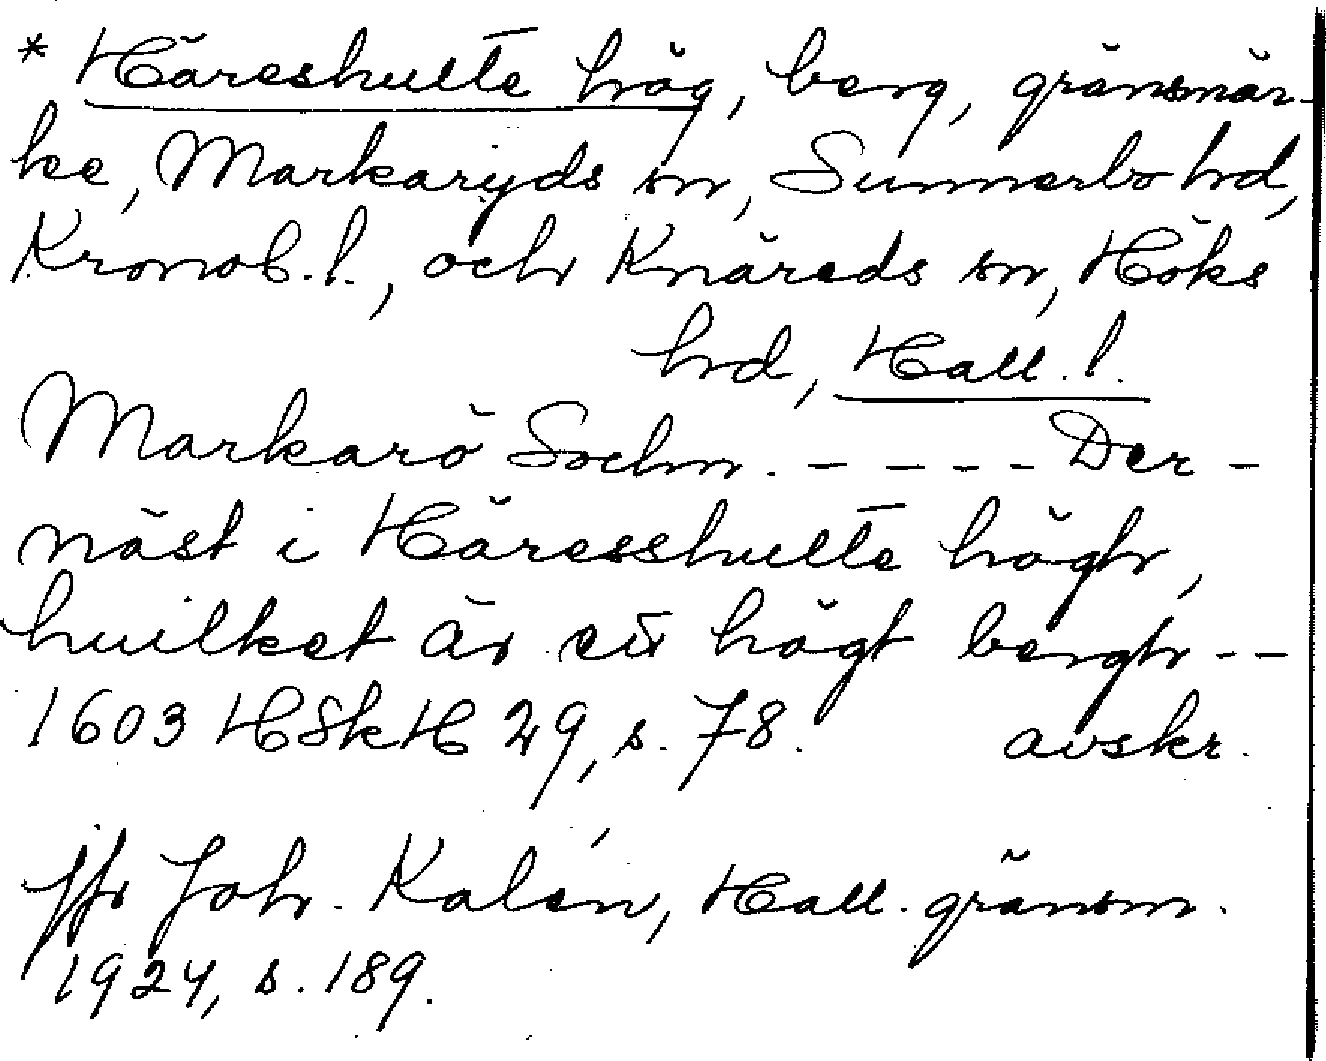 * Häreshulte hög, berg, gränsmär-
ke, Markaryds sn, Sunnerbo hd,
Kronob. l., och Knäreds sn, Höks
hd, Hall. l.
Markarö Sochn. - - - - Der-
näst i Häresshulte högh,
huilket är ett högt bergh --
1603 HSkH 29, s. 78. avskr.
jfr Joh. Kalén, Hall. gränsm.
1924, s. 189.